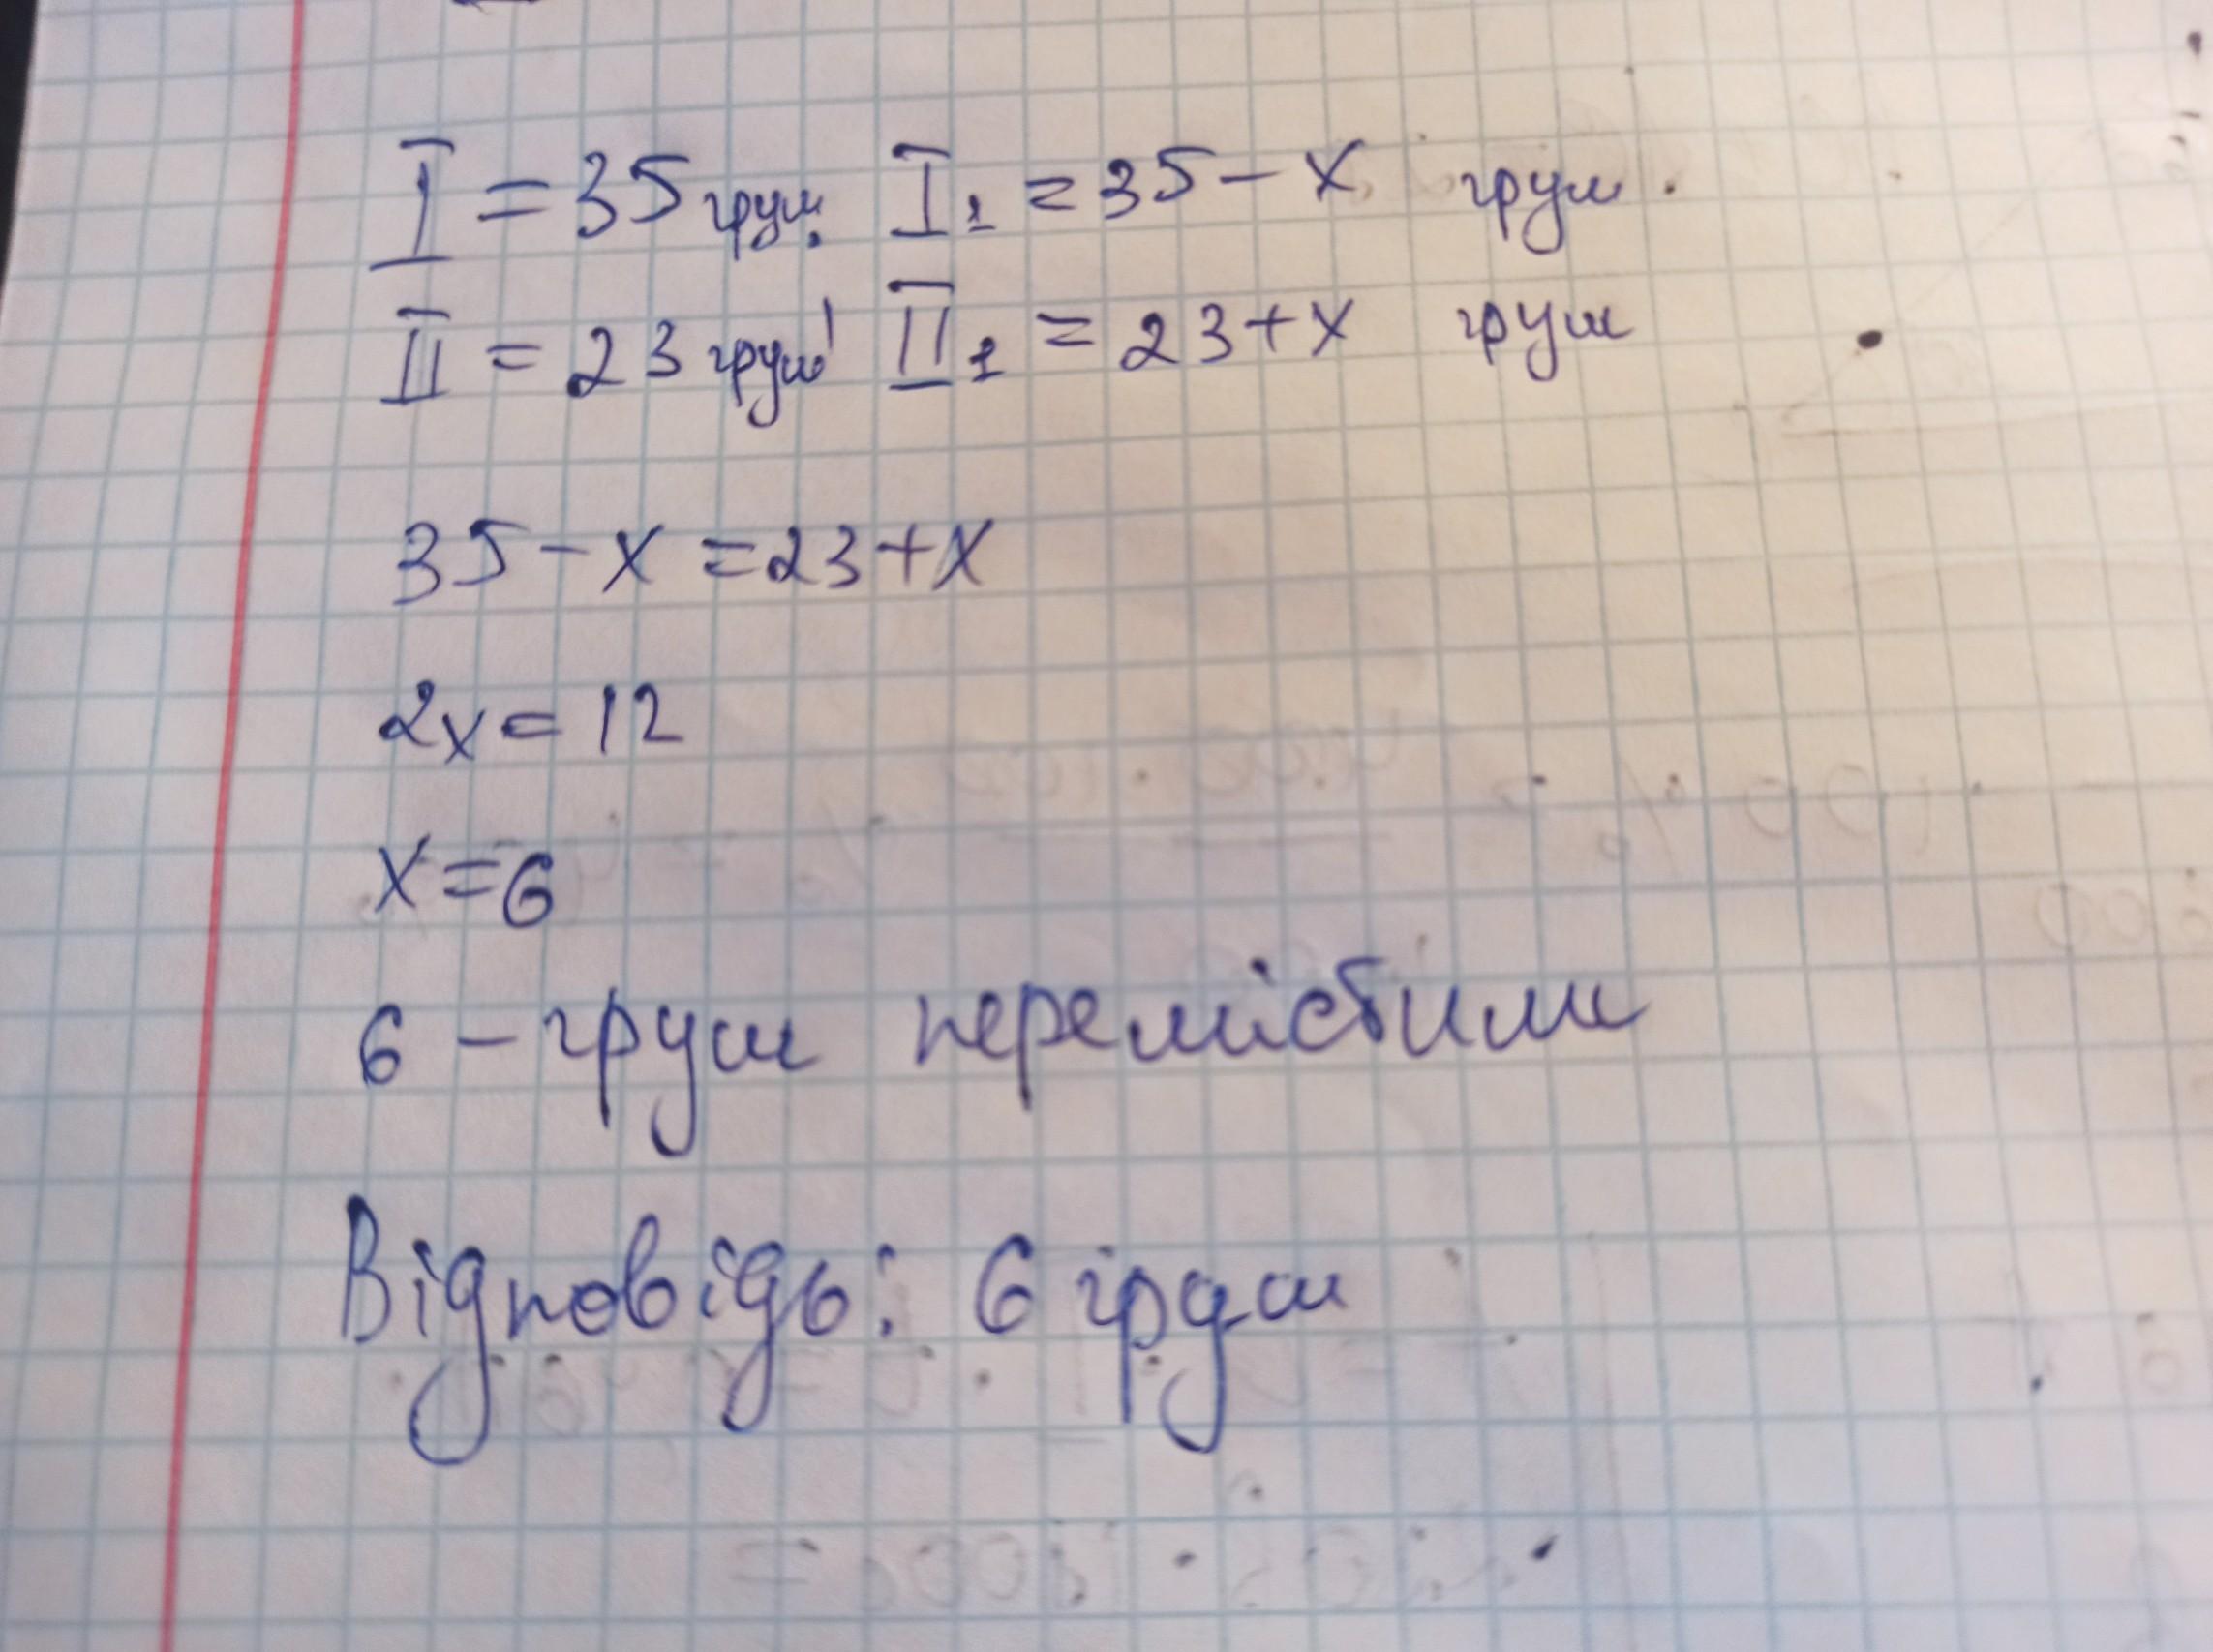 I = 35 груш. I₁ = 35 - x груш.
II = 23 груш II₁ = 23 + x груш
35 - x = 23 + x
2x = 12
x = 6
6 - груш перемістили
Відповідь: 6 груш